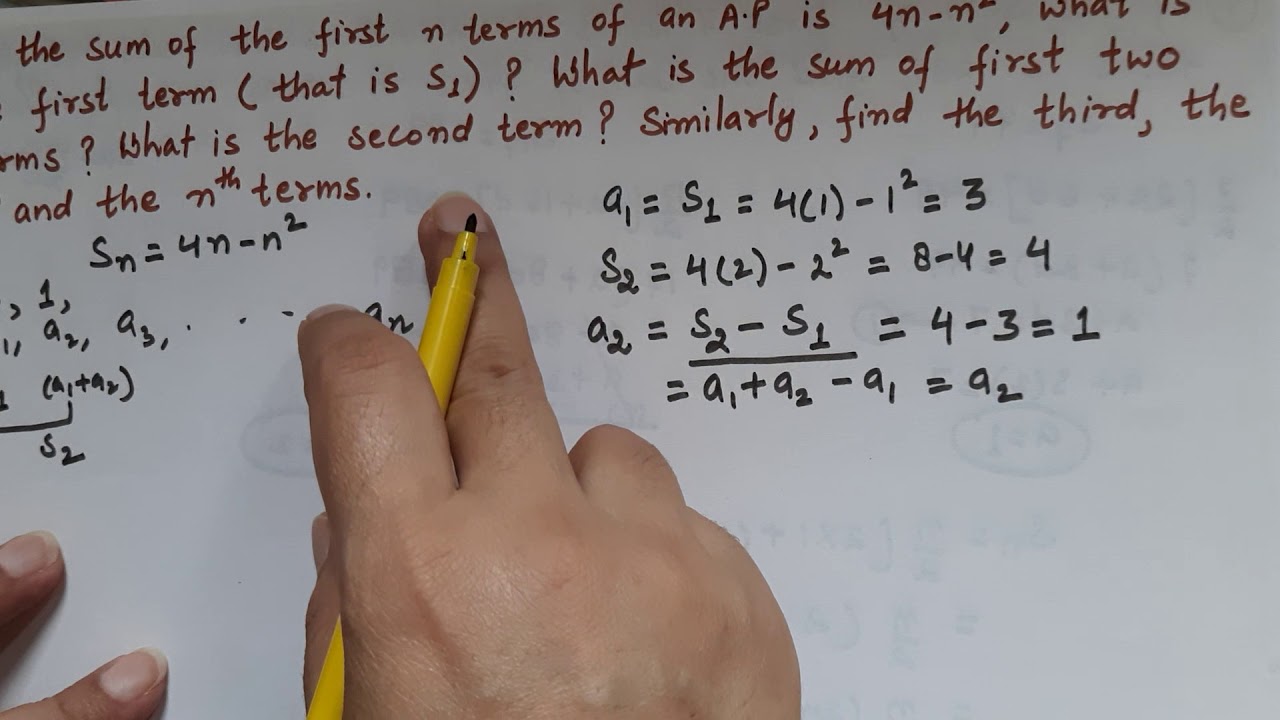 the sum of the first n terms of an A.P is 4n-n², What is
first term ( that is S₁) ? What is the sum of first two
rms ? What is the second term ? Similarly, find the third, the
and the nᵗʰ terms.
Sₙ = 4n-n²
, 1,
a₂, a₃, . . . aₙ
(a₁+a₂)
S₂
a₁ = S₁ = 4(1) - 1² = 3
S₂ = 4(2) - 2² = 8-4 = 4
a₂ = S₂ - S₁ = 4-3 = 1
= a₁+a₂ - a₁ = a₂